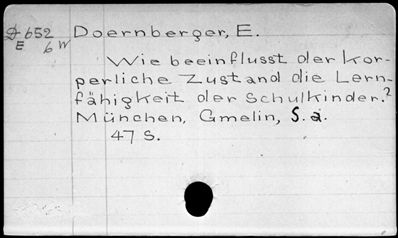 D 652 Doernberger, E.
E 6 W
Wie beeinflusst der Kör-
perliche Zustand die Lern-
fähigkeit der Schulkinder.?
München, Gmelin, S. a.
47 S.